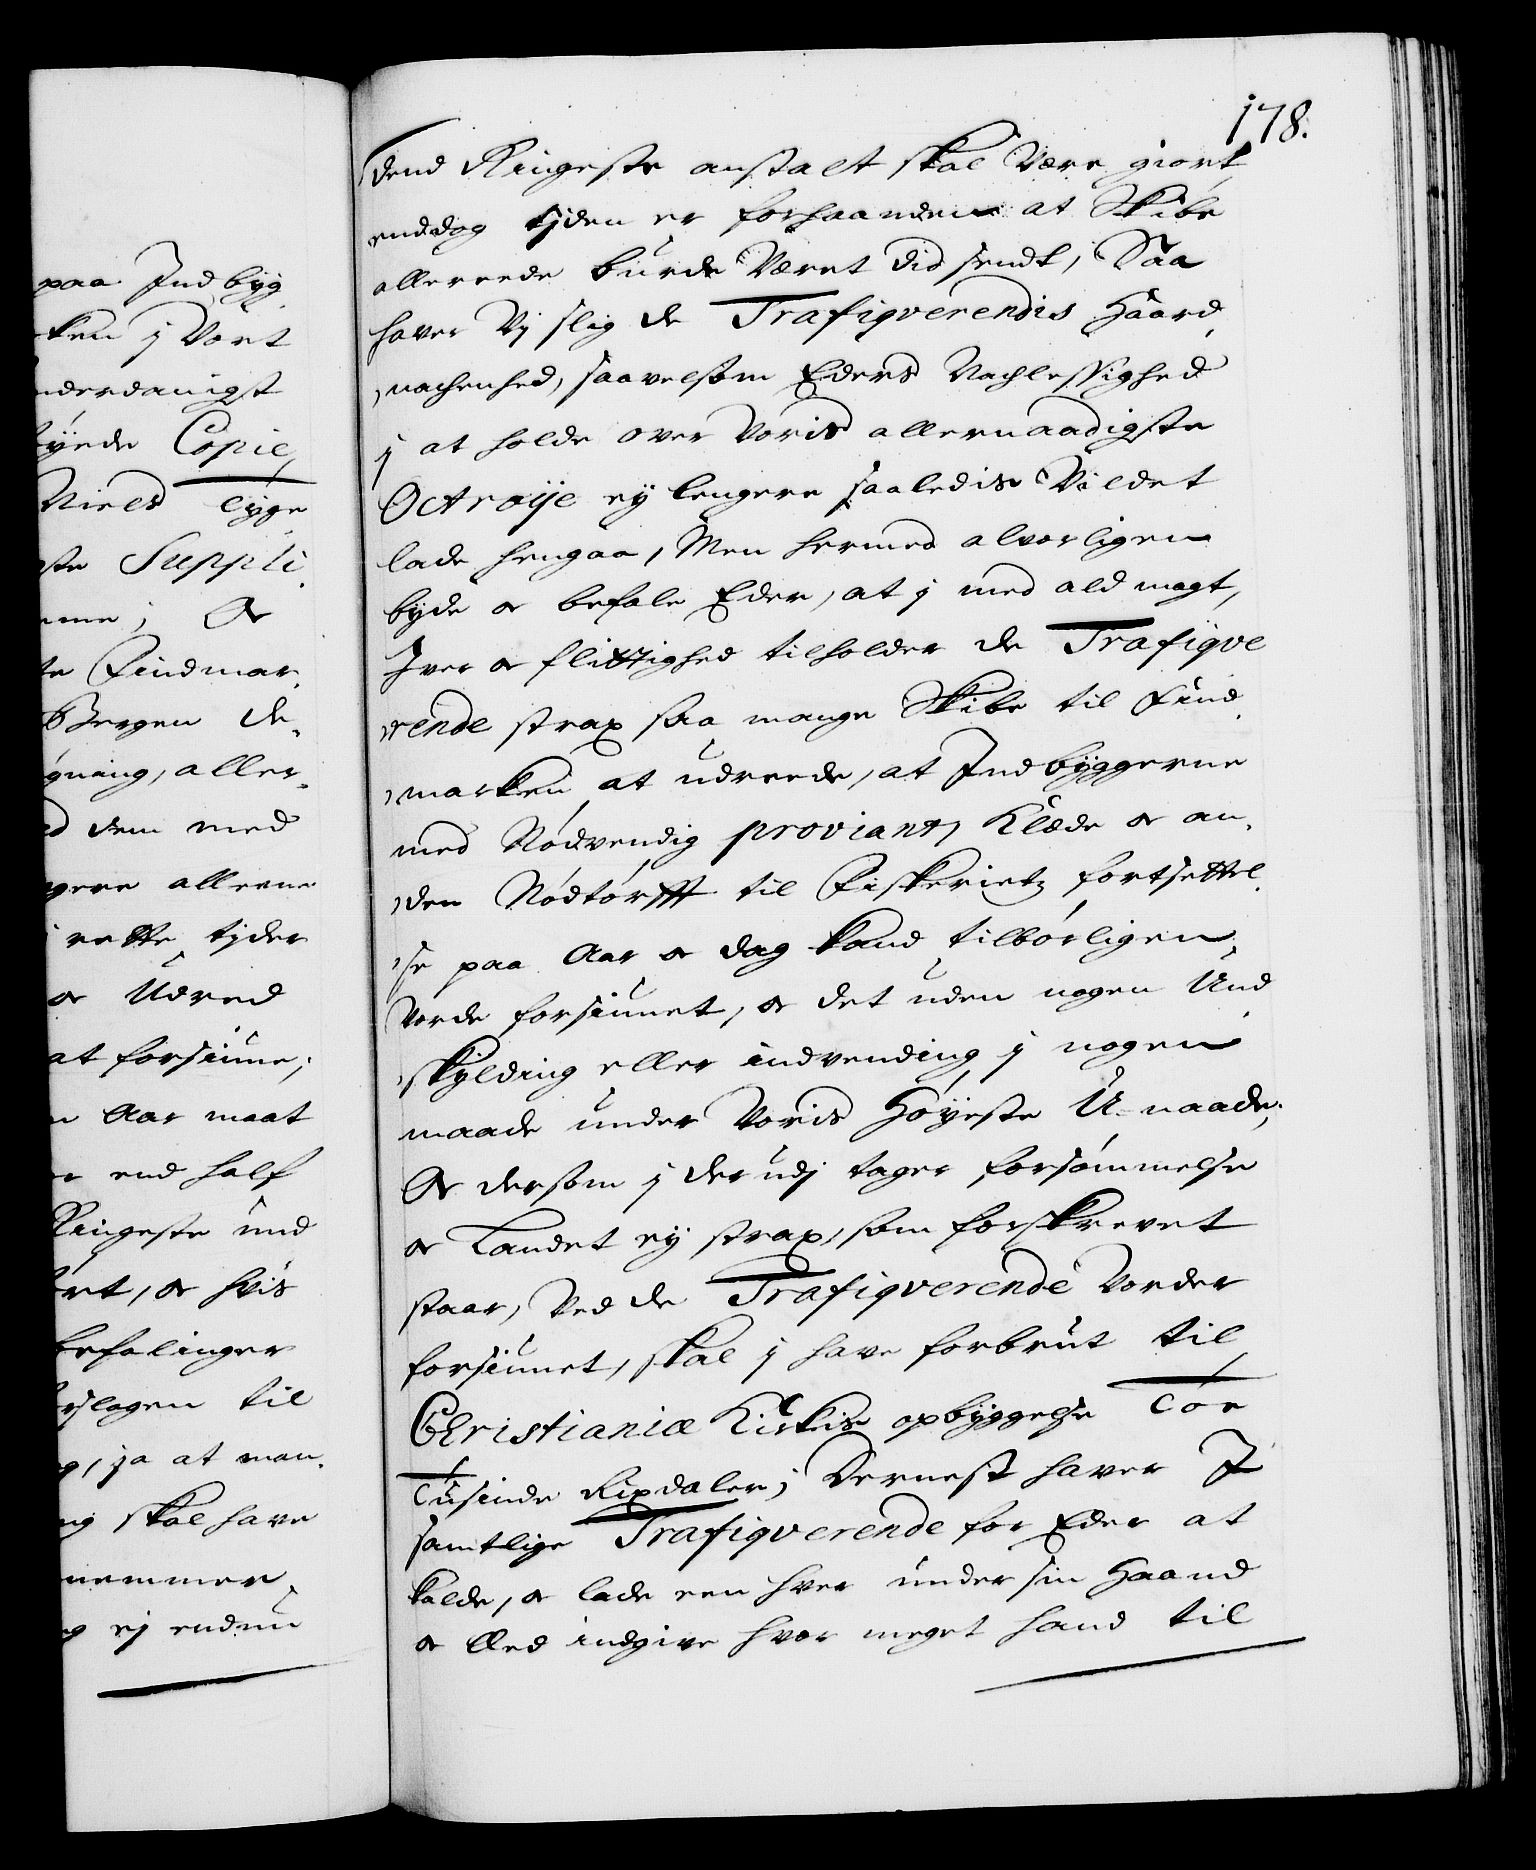 paa Indbyg
ken j Vort
nderdanigst
föyede Copie,
Niels lyge
ste Suppli
mme; Oc
te Findmar
Bergen de
gning, aller
d dem med
gere allerne
rette tijder
oc Udred
at forsiune;
n Aar maat
r end half
Ringeste und
ret, oc hvis
befalinger
rslagen til
g, ja at man
ng skal have
nemmer
g ej endnu
178.
dend Ringeste anstalt skal Være giort,
enddog tjden er forhaanden at Skibe
allereede burde Været did sendt, Saa
haver Vj slig de Trafiqverendis Haard
nachenhed, saavelsom Eders Nachlessighed
j at holde over Voris allernaadigste
Octroije ey lengere saaledis Vildet
lade hengaa, Men hermed alvorligen
byde oc befale Eder, at j med ald magt,
Iver oc flittighed tilholder de Trafiqve
rende strax saa mange Skibe til Find
marken at udreede, at Indbyggerne
med Nödvendig proviant, Klæde oc an
den Nödtörfft til Fiskerietz fortsettel
se paa Aar oc dag kand tilbörligen
Vorde forsiunet, oc det uden nogen Und
skylding eller indvending j nogen
maade under Voris Höyeste U-naade;
Oc dersom j derudj tager forsömmelse
oc Landet ey strax, som forskrevet
staar, Ved de Trafiqverende Vorder
forsiunet, skal j have forbrut til
Christianiæ Kirkis opbyggelse Toe
Tusinde Rixdaler; Dernest haver I
samtlige Trafiqverende for Eder at
kalde, oc lade een hver under sin Haand
oc Eed indgive hvor meget hand til